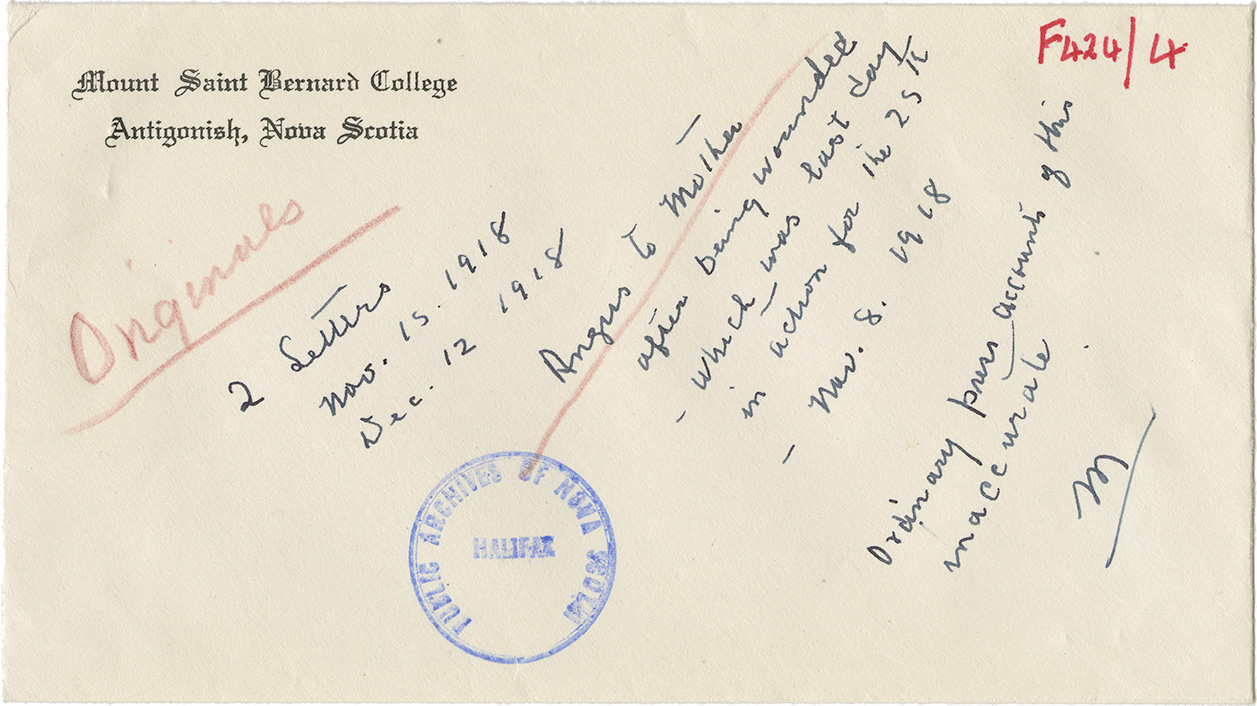 Mount Saint Bernard College
Antigonish, Nova Scotia
F424/4
Originals
2 Letters
Nov. 15. 1918
Dec. 12 1918
Angus to Mother
after being wounded
- which was last day
in action for the 25th
- Nov. 8. 1918
Ordinary press accounts of this
inaccurate.
M
PUBLIC ARCHIVES OF NOVA SCOTIA
HALIFAX